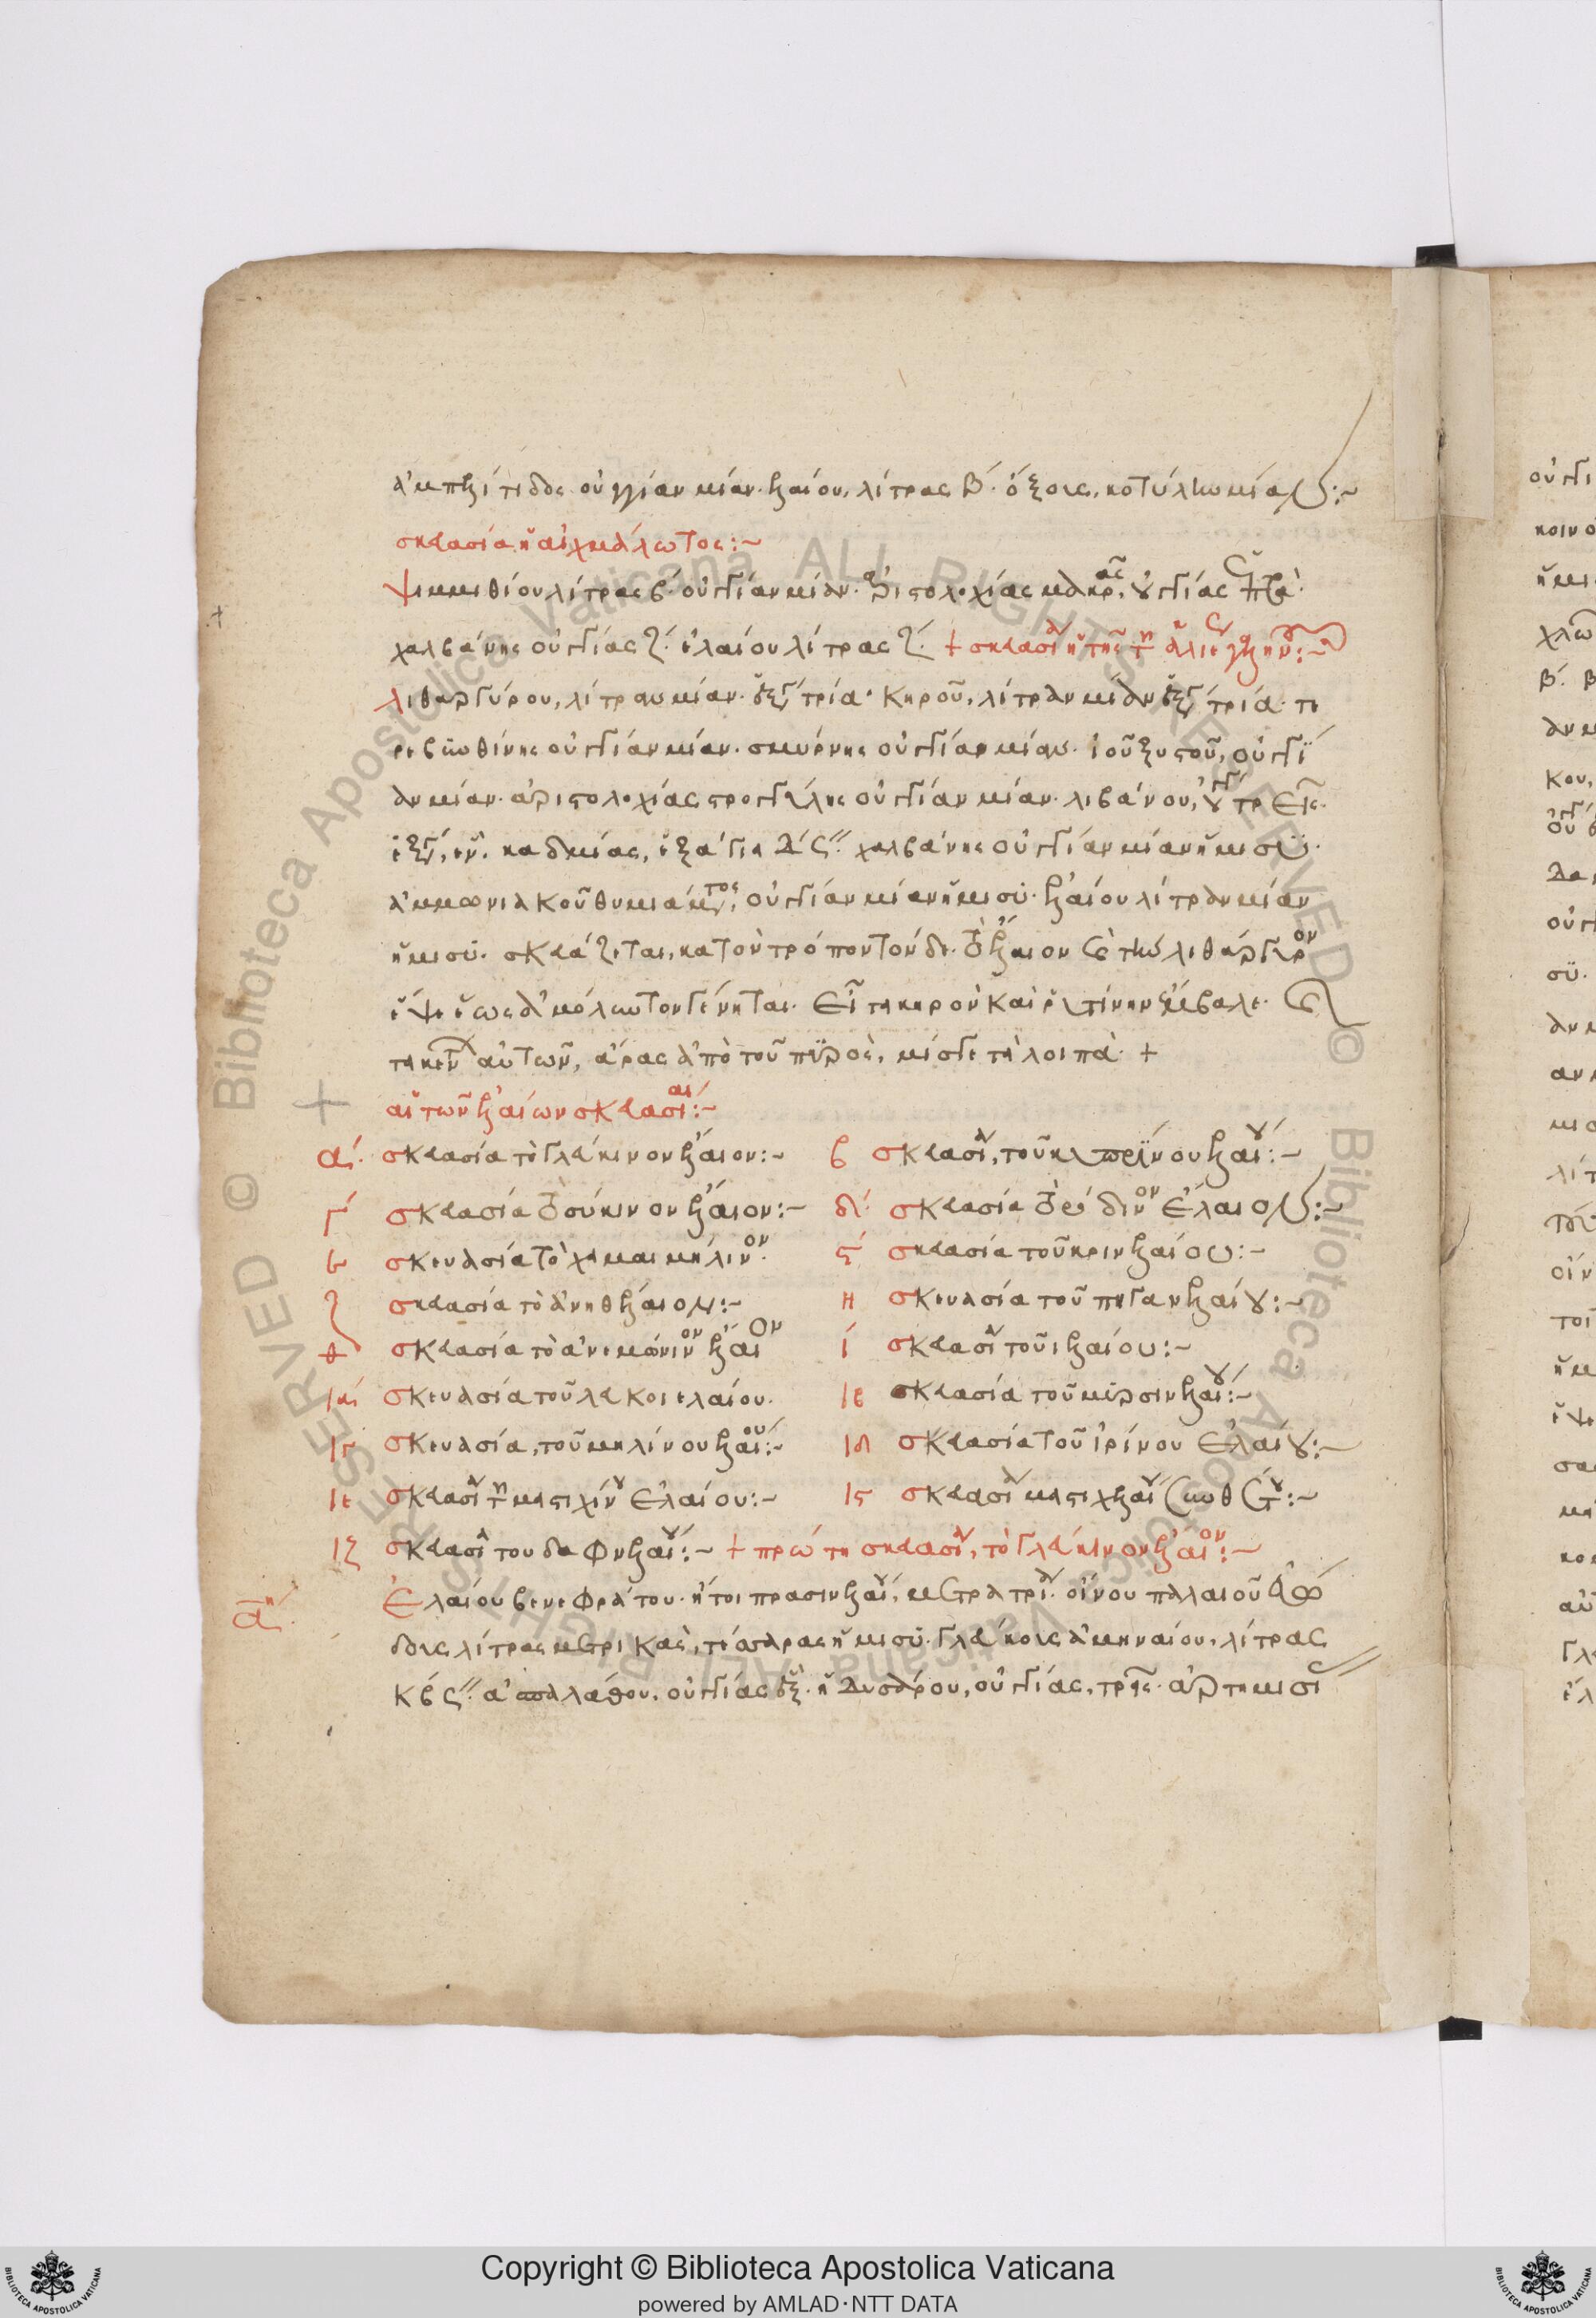 ἀμπελίτιδος οὐγγίαν μίαν· ἐλαίου, λίτρας β΄· ὄξους, κοτύλην μίαν:~
σκευασία ἡ αἰχμάλωτος:~
ψιμμιθίου λίτρας β΄· οὐγγίαν μίαν· ἀριστολοχίας μακρᾶς, οὐγγίας
χαλβάνης οὐγγίας ζ΄· ἐλαίου λίτρας ζ΄· + σκευασία ἡ τῆς
λιθαργύρου, λίτραν μίαν· ἑξάγια τρία· κηροῦ, λίτραν μίαν ἑξάγια τρία· τε
ρεβινθίνης οὐγγίαν μίαν· σμύρνης οὐγγίαν μίαν· ἰοῦ ξυστοῦ, οὐγγί
αν μίαν· ἀριστολοχίας στρογγύλης οὐγγίαν μίαν· λιβάνου, οὐγγίας τρεῖς·
καδμίας, ἑξάγια χαλβάνης οὐγγίαν μίαν ἥμισυ·
ἀμμωνιακοῦ θυμιάματος, οὐγγίαν μίαν ἥμισυ· ἐλαίου λίτραν μίαν
ἥμισυ· σκευάζεται, κατὸν τρόπον τόνδε· τὸ ἔλαιον καὶ τὴν λιθάργυρον
ἕψε ἕως ἀμόλυντον γένηται· εἶτα κηρὸν καὶ ῥητίνην ἔμβαλε· καὶ
τακέντων αὐτῶν, ἄρας ἀπὸ τοῦ πυρὸς, μίσγε τὰ λοιπά· +
αἱ τῶν ἐλαίων σκευασίαι:~
α΄. σκευασία τὸ γλεύκινον ἔλαιον:~ β σκευασία, τοῦ κυπρίνου ἐλαίου:~
γ΄ σκευασία τὸ σούκινον ἔλαιον:~ δ΄. σκευασία τὸ ῥόδινον ἔλαιον:~
ε σκευασία τὸ χαμαιμήλινον· ς΄ σκευασία τοῦ κρινελαίου:~
ζ σκευασία τὸ ἀνηθέλαιον:~ η σκευασία τοῦ πηγανελαίου:~
θ σκευασία τὸ ἀνεμώνινον ἔλαιον ι΄ σκευασία τοῦ ἰελαίου:~
ια΄ σκευασία τοῦ λευκοιελαίου. ιβ σκευασία τοῦ μυρσινελαίου:~
ιγ σκευασία, τοῦ μηλίνου ἐλαίου:~ ιδ σκευασία τοῦ ἰρίνου ἐλαίου:~
ιε σκευασία τῆς μαστιχίνου ἐλαίου:~ ις σκευασία μαστιχελαίου
ιζ σκευασία του δαφνελαίου:~ + πρώτη σκευασία, τὸ γλεύκινον ἔλαιον:~
ἐλαίου βενεφράτου· ἤτοι πρασινελαίου, μέτρα τρία· οἴνου παλαιοῦ
λίτρας μετρικὰς, τέσσαρας ἥμισυ· γλεύκους ἀμηναίου, λίτρας
κβς΄΄· ἀσπαλάθου, οὐγγίας ἕξ· ἡδυσάρου, οὐγγίας, τρεῖς· ἀρτημισί